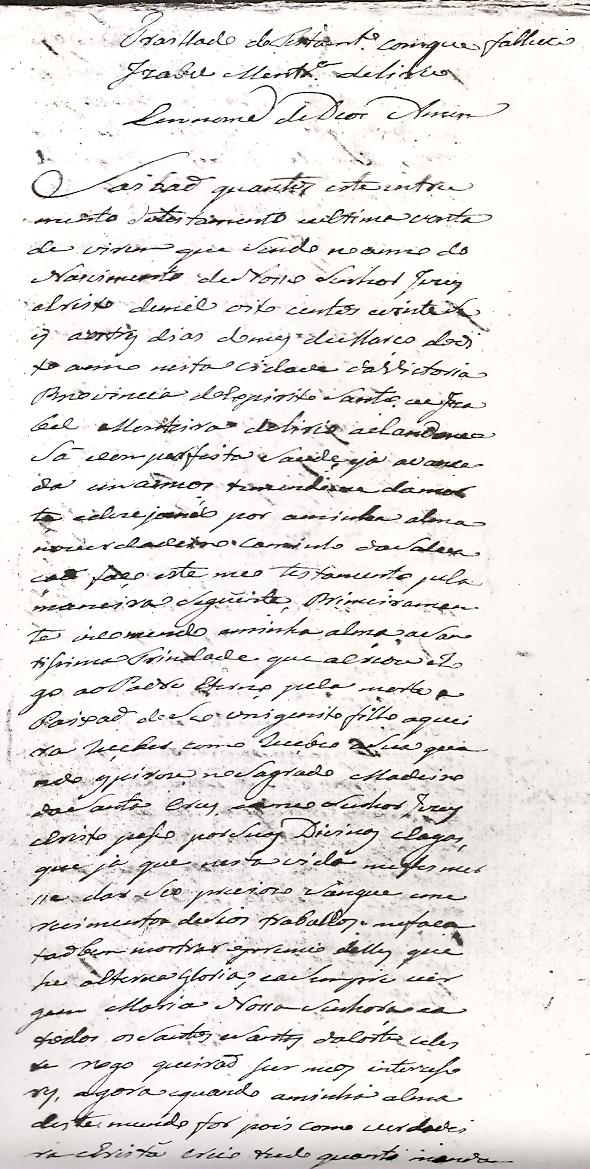 Traslado do Testamto com que falleceo
Izabel Montra de Lirio
Em nome de Deos Amen
Saibaõ quantos este instru
mento de testamento e ultima vonta
de virem que sendo no anno do
Nascimento de Nosso Senhor Jezus
Christo de mil oito centos e vinte
aos tres dias do mez de Marco do di
to anno nesta Cidade da Victoria
Provincia do Espirito Santo, eu Iza
bel Monteira de Lirio achandome
Sã e em perfeita Saude, ja avansa
da em annos e temendome da mor
te e dezejando por a minha alma
no verdadeiro caminho da Salva
caõ faço este meo testamento pela
maneira Seguinte, Primeiramen
te incomendo a minha alma a San
tissima Trindade que a criou e Ro
go ao Padre Eterno pela morte e
Paixaõ de Seo Unigenito filho a quei
ra receber como recebeo a Sua qua
ndo espirou no Sagrado Madeiro
da Santa Cruz, e a meo Senhor Jezus
Christo peço por Suas Divinas Chagas,
que ja que nesta vida me fes mer
ce dar Seo preciozo Sangue e me
recimentos de Seos trabalhos, me faca
taõbem mostrar o premio delles que
he a Eterna Gloria, e a Sempre Vir
gem Maria Nossa Senhora e a
todos os Santos e Santas da Corte celes
te rogo queiraõ ser meos interceso
res, agora e quando a minha alma
deste mundo for pois como verdadei
ra Christã creio tudo quanto manda